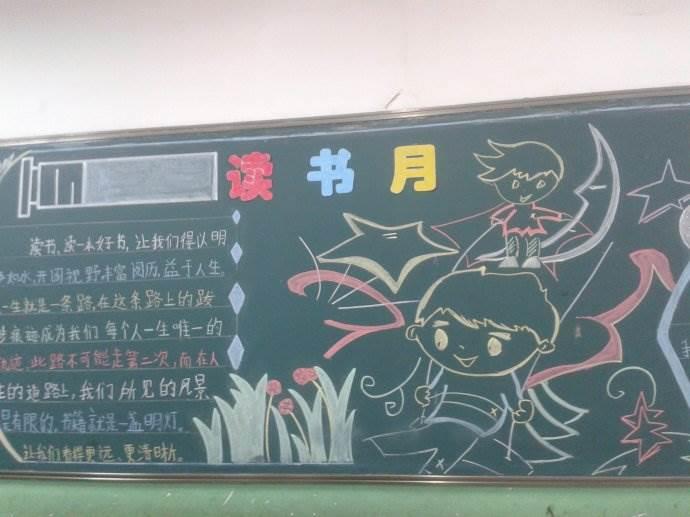 读书月
读书，读一本好书，让我们得以明
如水，开阔视野，丰富阅历，益于人生。
一生就是一条路，在这条路上的跋
痕迹成为我们每个人一生唯一的
此路不可能走第二次，而在人
生的道路上，我们所见的风景
是有限的，书籍就是一盏明灯。
让我们看得更远、更清晰。